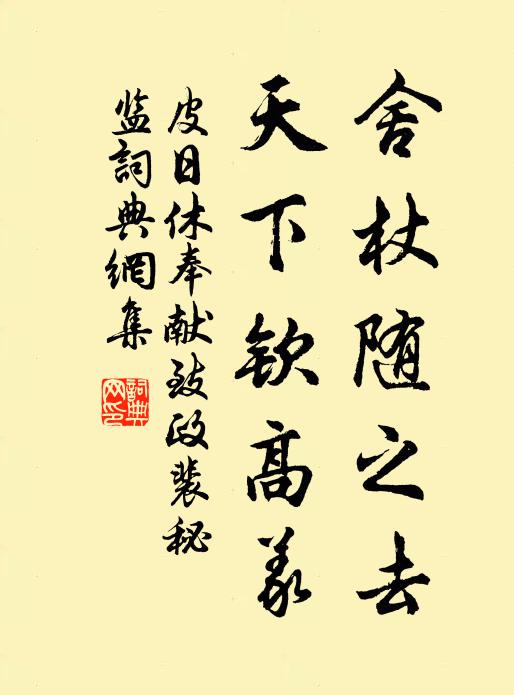 舍杖随之去
天下欽高義
皮日休奉献致政裴秘
监詞典網集
詞典網印